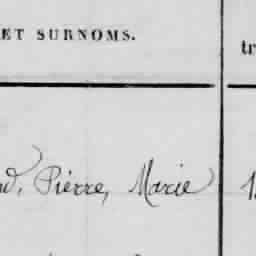 ET SURNOMS.
tr
Pierre, Marie